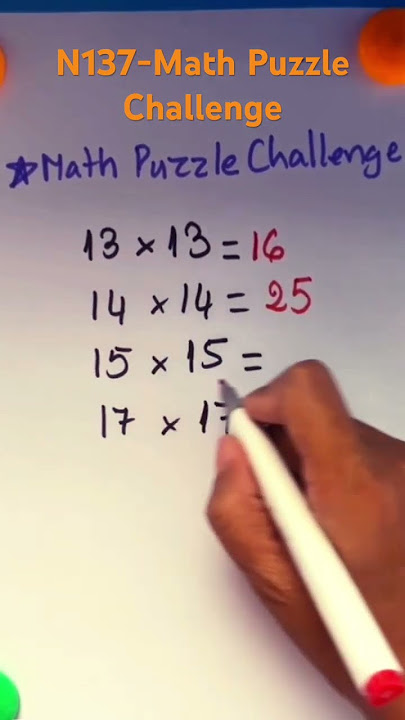 N137-Math Puzzle
Challenge
Math Puzzle Challenge
13 × 13 = 16
14 × 14 = 25
15 × 15 =
17 × 17